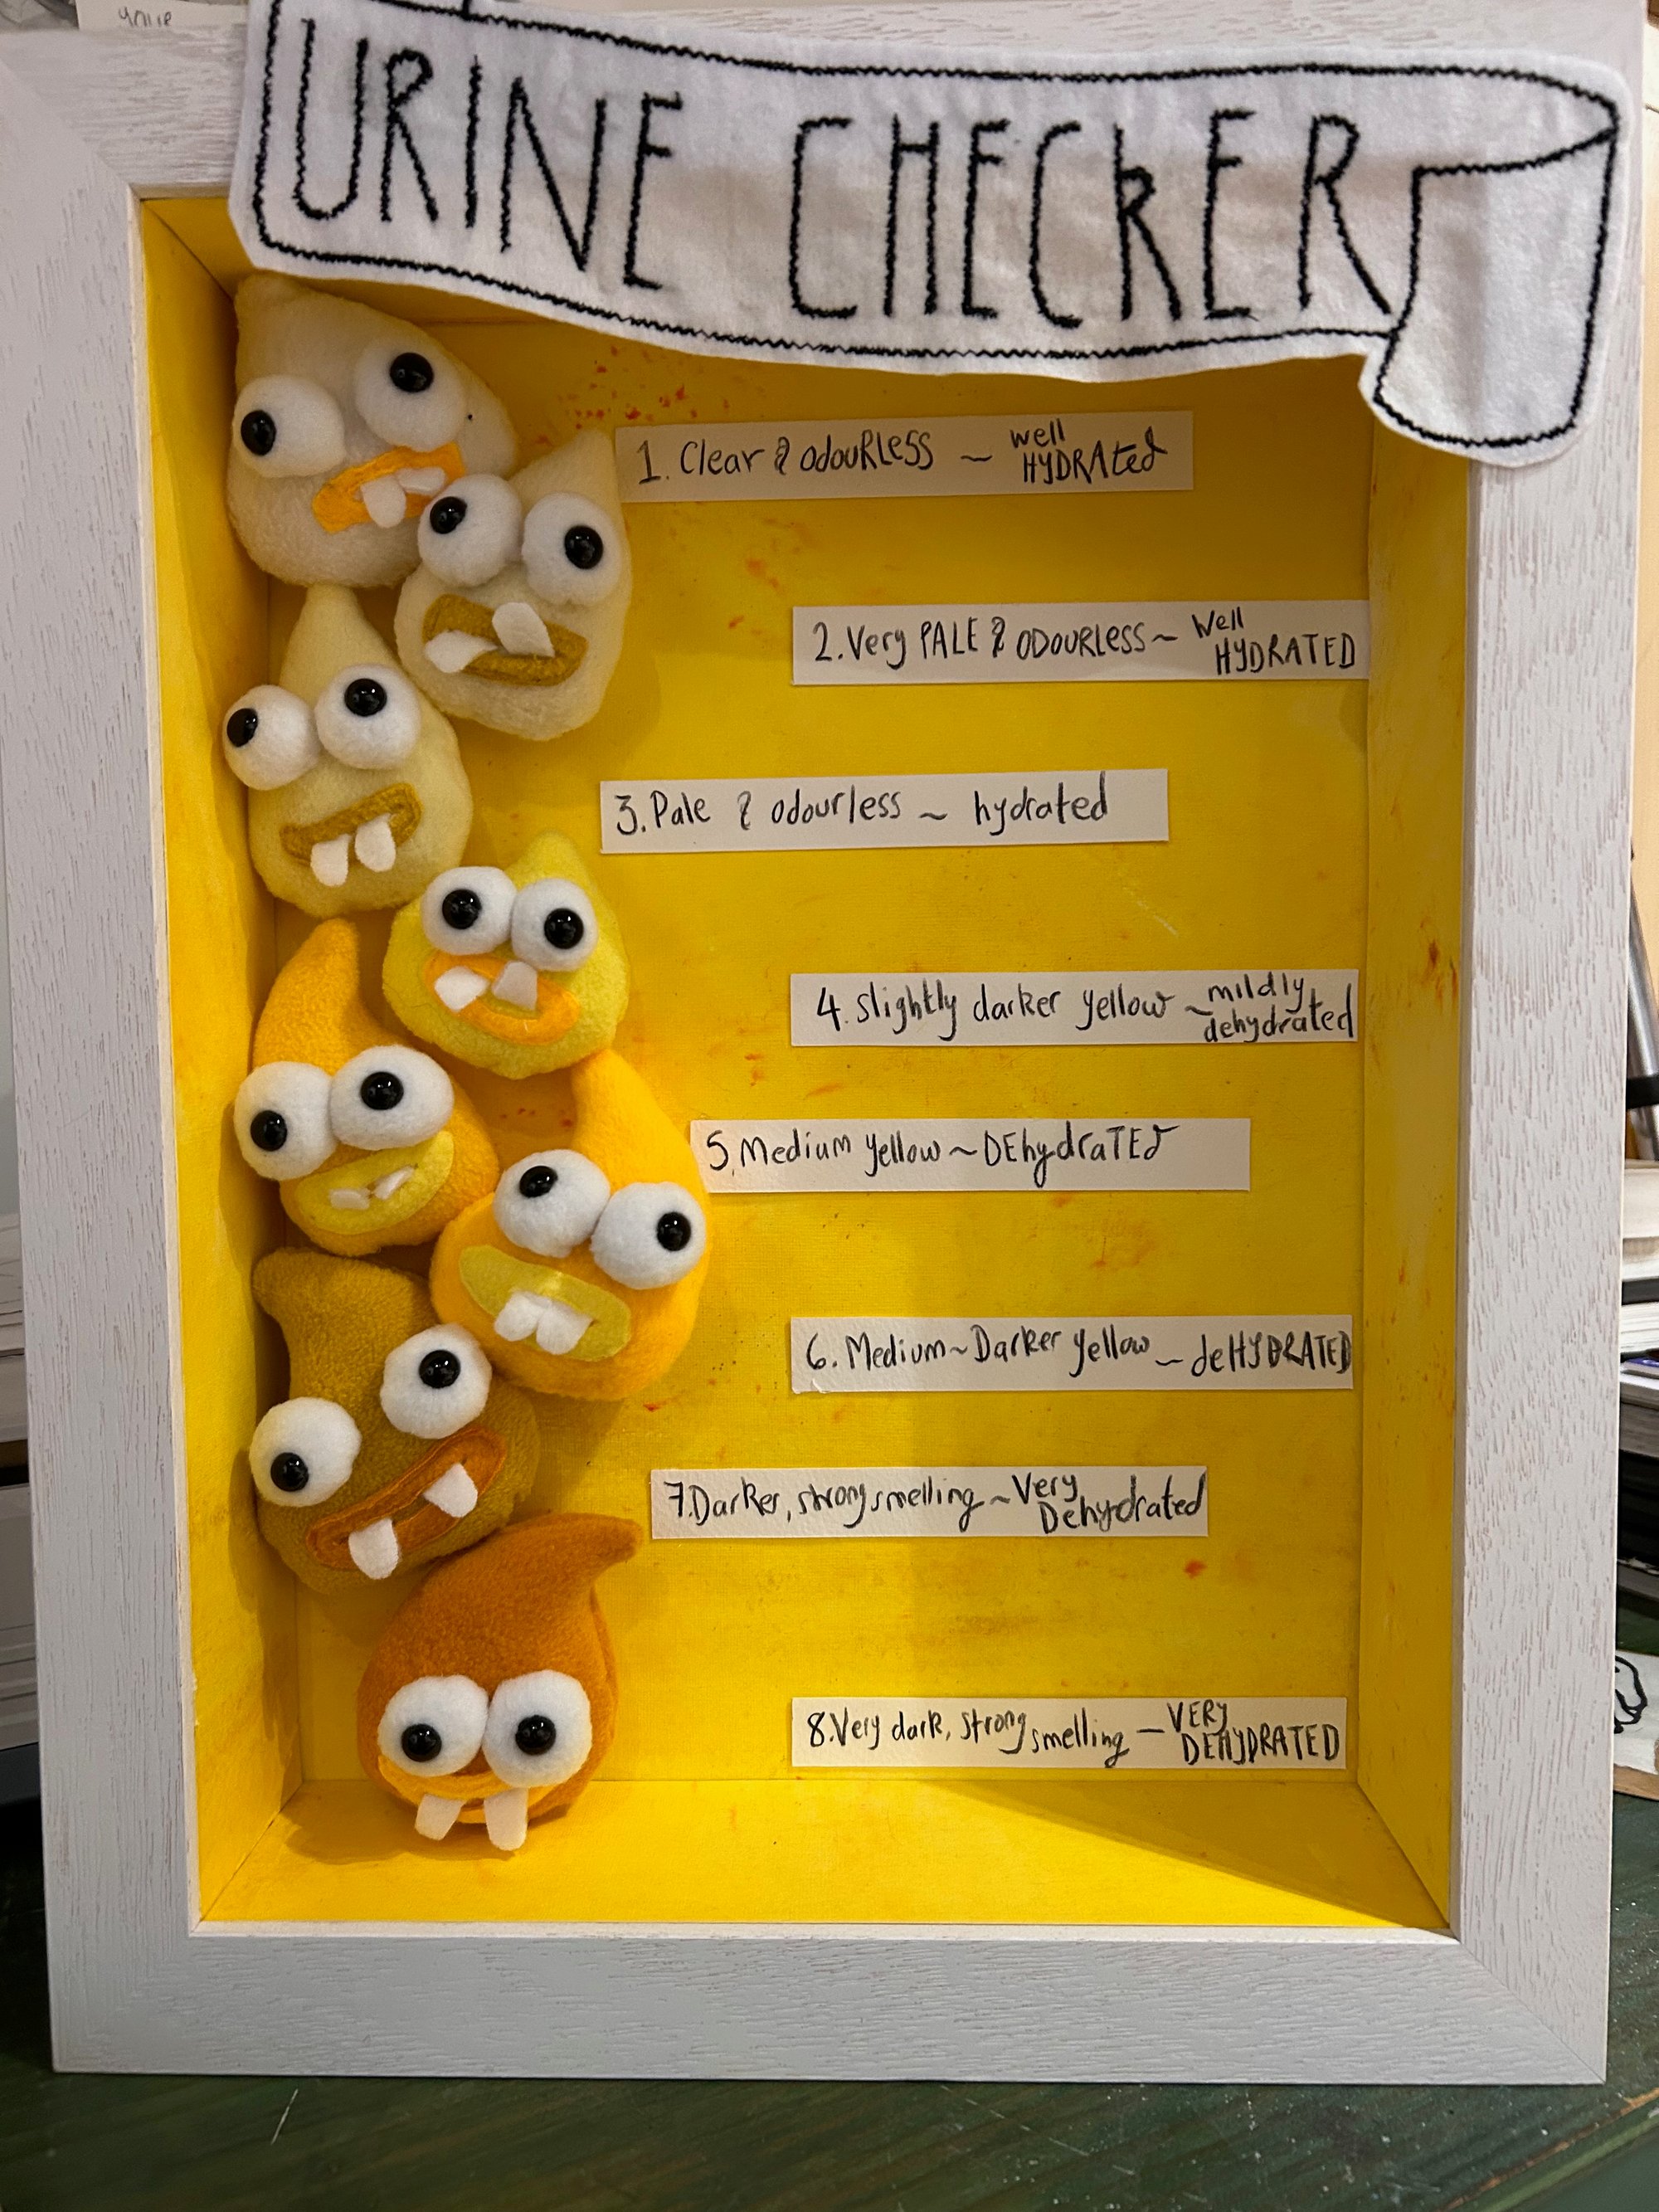 URINE CHECKER
1. Clear & odouRLESS ~ well
HYDRAted
2. Very PALE & ODOURLESS ~ Well
HYDRATED
3. Pale & odourless ~ hydrated
4. Slightly darker yellow ~ mildly
dehydrated
5. Medium yellow ~ DEhydraTEd
6. Medium ~ Darker yellow ~ deHYDRATED
7. Darker, strong smelling ~ Very
Dehydrated
8. Very dark, strong smelling ~ VERY
DEHYDRATED